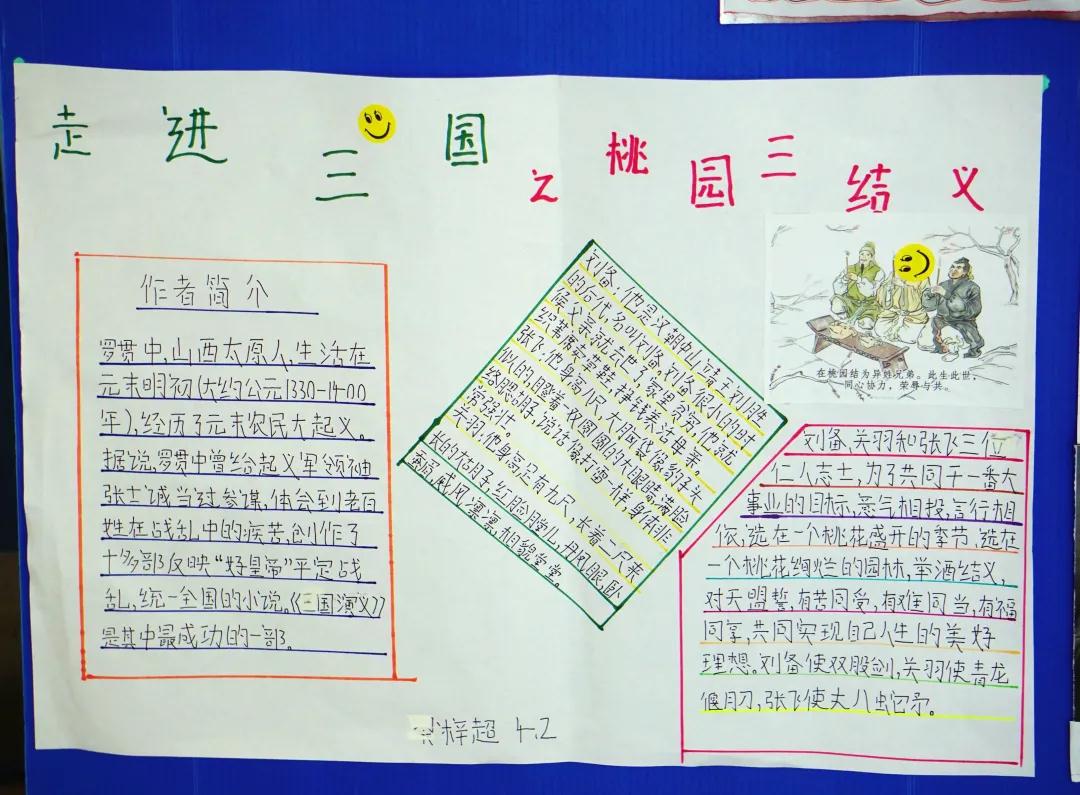 走进三国之桃园三结义
作者简介
罗贯中,山西太原人,生活在
元末明初(大约公元1330-1400
年),经历了元末农民大起义。
据说,罗贯中曾给起义军领袖
张士诚当过参谋,体会到老百
姓在战乱中的疾苦,创作了
十多部反映“好皇帝”平定战
乱,统一全国的小说。《三国演义》
是其中最成功的一部。
刘备,他是汉朝中山靖王刘胜
的后代,名叫刘备,刘备很小的时
候父亲就去世了,家里贫穷,他就
织草席卖草鞋,挣钱养活母亲。
张飞:他身高八尺,大脑袋像豹子头
似的,瞪着一双圆圆的大眼睛,满脸
络腮胡子,说话像打雷一样,身体非
常强壮。
关羽:他身高足有九尺,长着二尺来
长的胡子,红脸膛儿,丹凤眼,卧
蚕眉,威风凛凛,相貌堂堂。
在桃园结为异姓兄弟。此生此世,
同心协力,荣辱与共。
刘备、关羽和张飞三位
仁人志士,为了共同干一番大
事业的目标,意气相投,言行相
依,选在一个桃花盛开的季节,选在
一个桃花绚烂的园林,举酒结义,
对天盟誓,有苦同受,有难同当,有福
同享,共同实现自己人生的美好
理想。刘备使双股剑,关羽使青龙
偃月刀,张飞使丈八蛇矛。
梓超 4.2